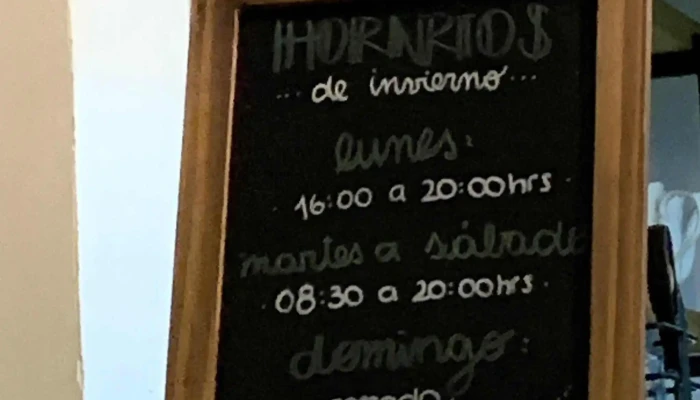 HORARIOS
... de invierno ...
lunes:
· 16:00 a 20:00hrs ·
martes a sábado
· 08:30 a 20:00hrs ·
domingo: